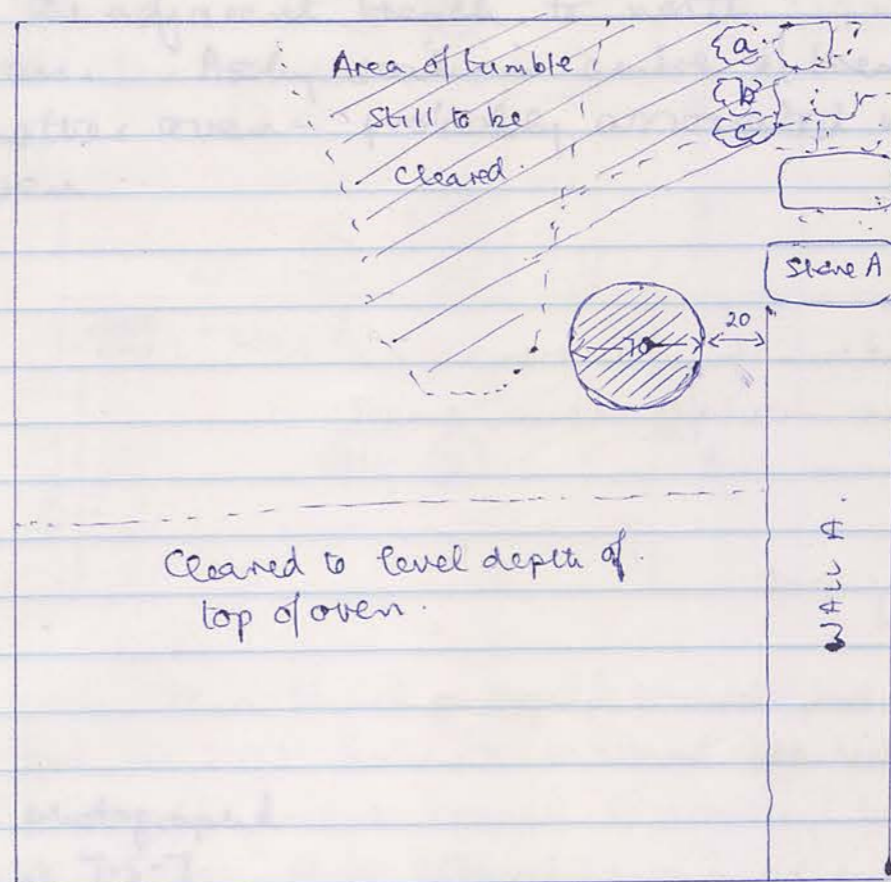 Area of tumble
still to be
cleared.
a
?
b
c
Stone A
20
70
Cleared to level depth of
top of oven.
WALL A.